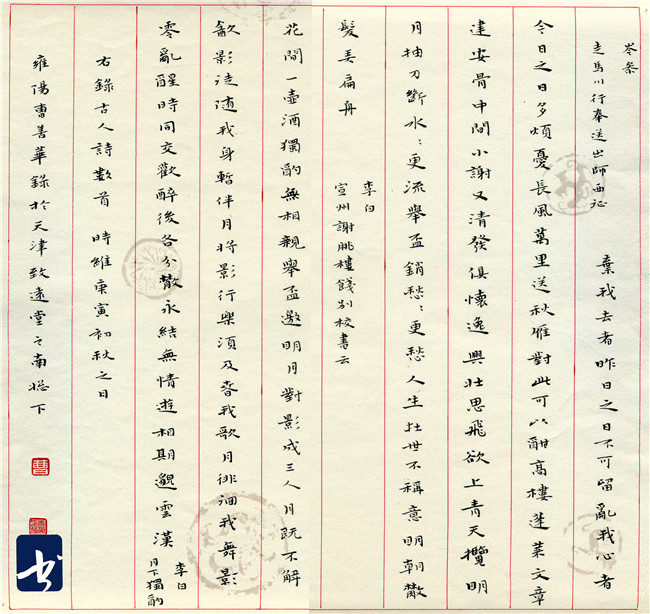 岑參
走馬川行奉送出師西征
棄我去者昨日之日不可留亂我心者
今日之日多煩憂長風萬里送秋雁對此可以酣高樓蓬萊文章
建安骨中間小謝又清發俱懷逸興壯思飛欲上青天攬明
月抽刀斷水〻更流舉盃銷愁〻更愁人生在世不稱意明朝散
髮弄扁舟
李白
宣州謝朓樓餞別校書云
花間一壺酒獨酌無相親舉盃邀明月對影成三人月既不解
飲影徒隨我身暫伴月將影行樂須及春我歌月徘徊我舞影
零亂醒時同交歡醉後各分散永結無情遊相期邈雲漢
李白
月下獨酌
右錄古人詩數首 時維庚寅初秋之日
雍陽曹善華錄於天津致遠堂之南窓下
书